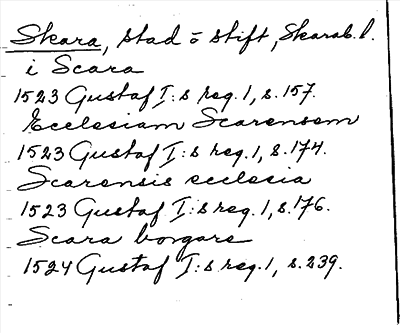 Skara, stad o stift, Skarab. l.
i Scara
1523 Gustaf I:s reg. 1, s. 157.
Ecclesiam Scarensem
1523 Gustaf I:s reg. 1, s. 174.
Scarensis ecclesia
1523 Gustaf I:s reg. 1, s. 176.
Scara borgare
1524 Gustaf I:s reg. 1, s. 239.